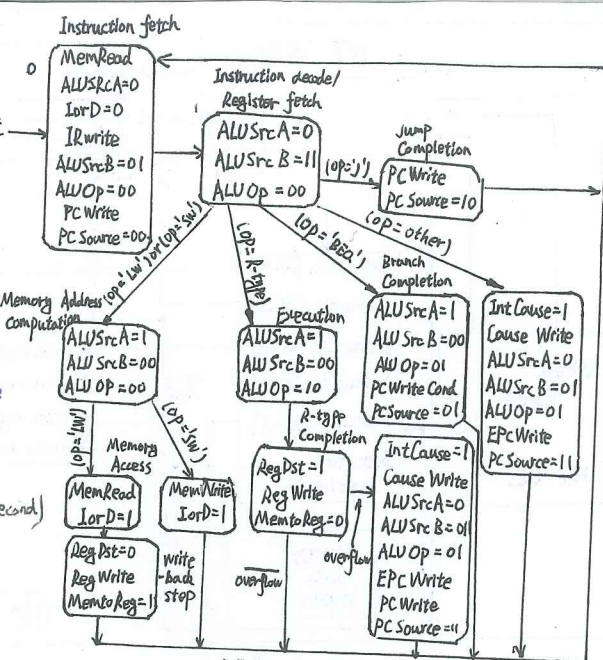 Instruction fetch
0
MemRead
ALUSRCA=0
IorD=0
IRwrite
ALUSrcB=01
ALUOp=00
PCWrite
PCSource=00
Instruction decode/
Register fetch
1
ALUSrcA=0
ALUSrcB=11
ALUOp=00
(OP='J')
Jump
Completion
PCWrite
PCSource=10
(OP='LW') or (OP='SW')
(OP=R-type)
(OP='BEQ')
(OP=other)
Memory Address
Computation
ALUSrcA=1
ALUSrcB=00
ALUOP=00
Execution
ALUSrcA=1
ALUSrcB=00
ALUOp=10
Branch
Completion
ALUSrcA=1
ALUSrcB=00
ALUOp=01
PCWrite Cond
PCSource=01
IntCause=1
Cause Write
ALUSrcA=0
ALUSrcB=01
ALUOp=01
EPCWrite
PCSource=11
(OP='LW')
(OP='SW')
Memory
Access
MemRead
IorD=1
MemWrite
IorD=1
R-type
Completion
RegDst=1
RegWrite
MemtoReg=0
IntCause=1
Cause Write
ALUSrcA=0
ALUSrcB=01
ALUOp=01
EPCWrite
PCWrite
PCSource=11
econd)
RegDst=0
RegWrite
MemtoReg=1
write
-back
stop
overflow
overflow